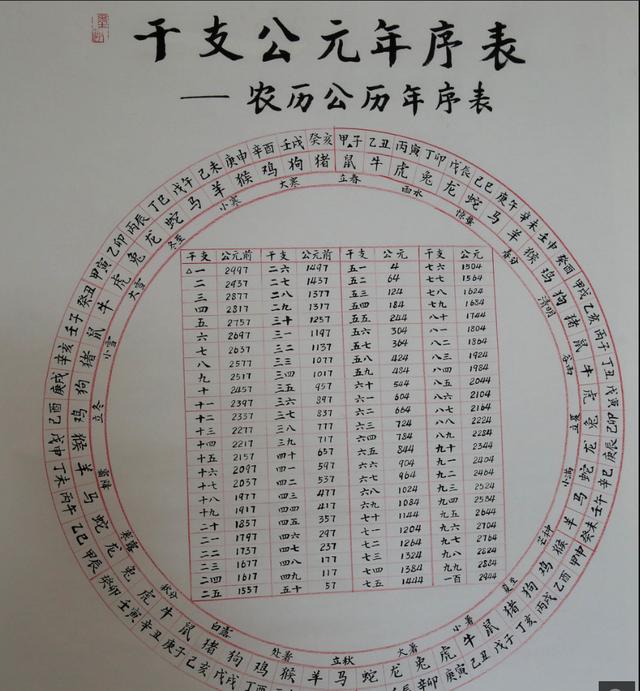 干支公元年序表
——农历公历年序表
甲子 乙丑 丙寅 丁卯 戊辰 己巳 庚午 辛未 壬申 癸酉 甲戌 乙亥 丙子 丁丑 戊寅 己卯 庚辰 辛巳 壬午 癸未 甲申 乙酉 丙戌 丁亥 戊子 己丑 庚寅 辛卯
戊戌 己亥 庚子 辛丑 壬寅 癸卯 甲辰 乙巳 丙午 丁未 戊申 己酉 庚戌 辛亥 壬子 癸丑 甲寅 乙卯 丙辰 丁巳 戊午 己未 庚申 辛酉 壬戌 癸亥
鼠 牛 虎 兔 龙 蛇 马 羊 猴 鸡 狗 猪 鼠 牛 虎 兔 龙 蛇 马 羊 猴 鸡 狗 猪 鼠 牛 虎 兔 龙 蛇 马 羊 猴 鸡 狗 猪 鼠 牛 虎 兔 龙 蛇 马 羊 猴 鸡 狗 猪 鼠 牛 虎 兔 龙 蛇 马 羊 猴 鸡 狗 猪
立春 雨水 惊蛰 春分 清明 谷雨 立夏 小满 芒种 夏至 小暑 大暑 立秋 处暑 白露 秋分 寒露 霜降 立冬 小雪 大雪 冬至 小寒 大寒
干支 公元前 干支 公元前 干支 公元 干支 公元
△一 2997 二六 1497 五一 4 七六 1504
二 2937 二七 1437 五二 64 七七 1564
三 2877 二八 1377 五三 124 七八 1624
四 2817 二九 1317 五四 184 七九 1684
五 2757 三十 1257 五五 244 八十 1744
六 2697 三一 1197 五六 304 八一 1804
七 2637 三二 1137 五七 364 八二 1864
八 2577 三三 1077 五八 424 八三 1924
九 2517 三四 1017 五九 484 八四 1984
十 2457 三五 957 六十 544 八五 2044
十一 2397 三六 897 六一 604 八六 2104
十二 2337 三七 837 六二 664 八七 2164
十三 2277 三八 777 六三 724 八八 2224
十四 2217 三九 717 六四 784 八九 2284
十五 2157 四十 657 六五 844 九十 2344
十六 2097 四一 597 六六 904 九一 2404
十七 2037 四二 537 六七 964 九二 2464
十八 1977 四三 477 六八 1024 九三 2524
十九 1917 四四 417 六九 1084 九四 2584
二十 1857 四五 357 七十 1144 九五 2644
二一 1797 四六 297 七一 1204 九六 2704
二二 1737 四七 237 七二 1264 九七 2764
二三 1677 四八 177 七三 1324 九八 2824
二四 1617 四九 117 七四 1384 九九 2884
二五 1557 五十 57 七五 1444 一百 2944